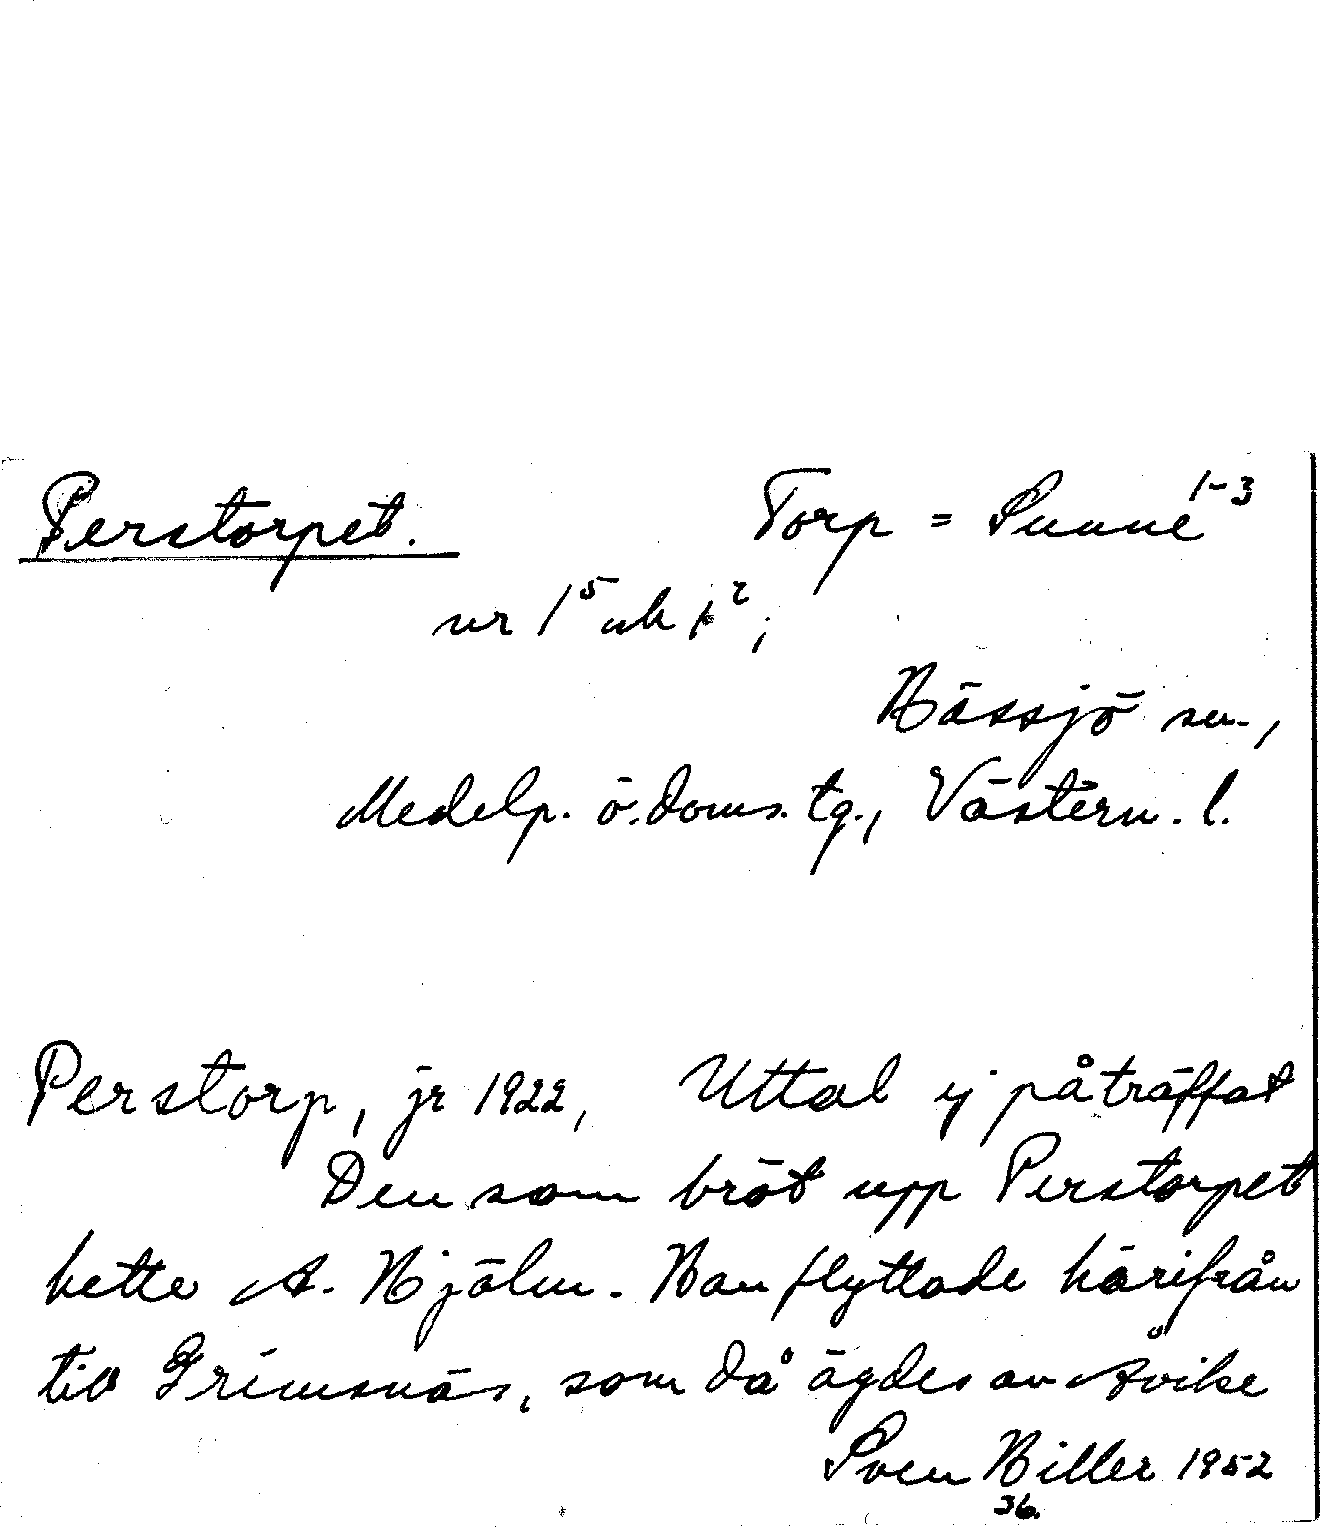 Perstorpet. Torp = Sunne 1-3
nr 1⁵ och 1²;
Hässjö sn.,
Medelp. ö. doms. tg., Västern. l.
Perstorp, jr 1922, Uttal ej påträffat
Den som bröt upp Perstorpet
hette A. Hjälm. Han flyttade härifrån
till Grimsnäs, som då ägdes av Åvike
Sven Hiller 1952
36.